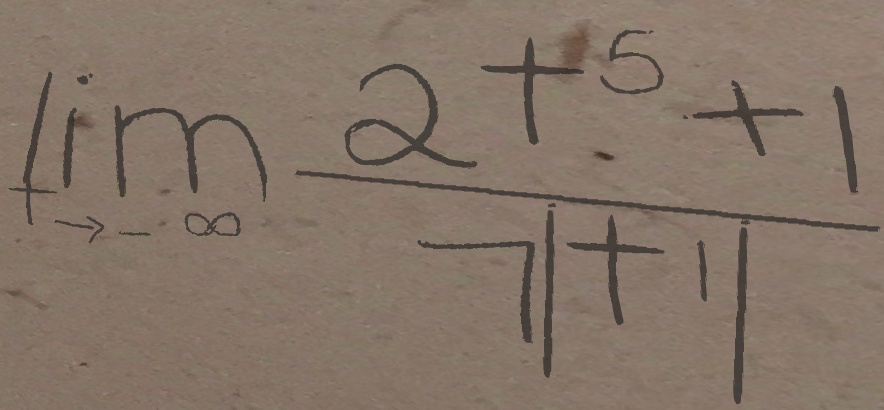 lim_{t → -∞} \frac{2t^5 + 1}{7|t^{11}|}